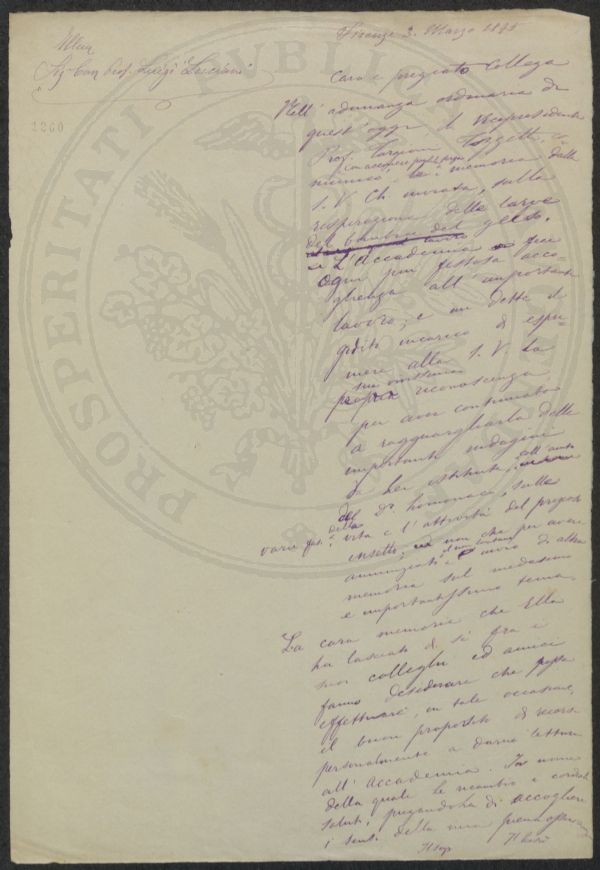 Firenze 3. Marzo 1895
Sig. Cav. Prof. Luigi
1260
Caro e pregiato Collega
Nell' adunanza ordinaria di
quest'oggi il Vicepresidente
Prof. Targioni Tozzetti, co-
con acconcie parole
municò la memoria dalla
S. V. Ch. inviata, sulla
respirazione delle larve
del bombice del gelso.
L'Accademia fece
ogni più festosa acco-
glienza all'importante
lavoro, e mi dette il
gradito incarico di espri-
mere alla S. V. la
sua
propria riconoscenza
per aver continuato
a ragguagliarla delle
importanti indagini
da Lei istituite, coll'aiuto
del Dr. sulla
varie fasi della vita e l'attività del
insetto, non che per avere
annunziato l'invio di altra
memoria sul medesimo
e importantissimo tema.
La cara memoria che Ella
ha lasciato di sè fra i
suoi colleghi ed amici
fanno desiderare che possa
effettuare, in tale occasione,
il buon proposito di recarsi
personalmente a darne lettura
all'Accademia. In nome
della quale le ricambio i cordiali
saluti, pregandola di accogliere
i sensi della mia piena
PROSPERITATI PUBLICAE